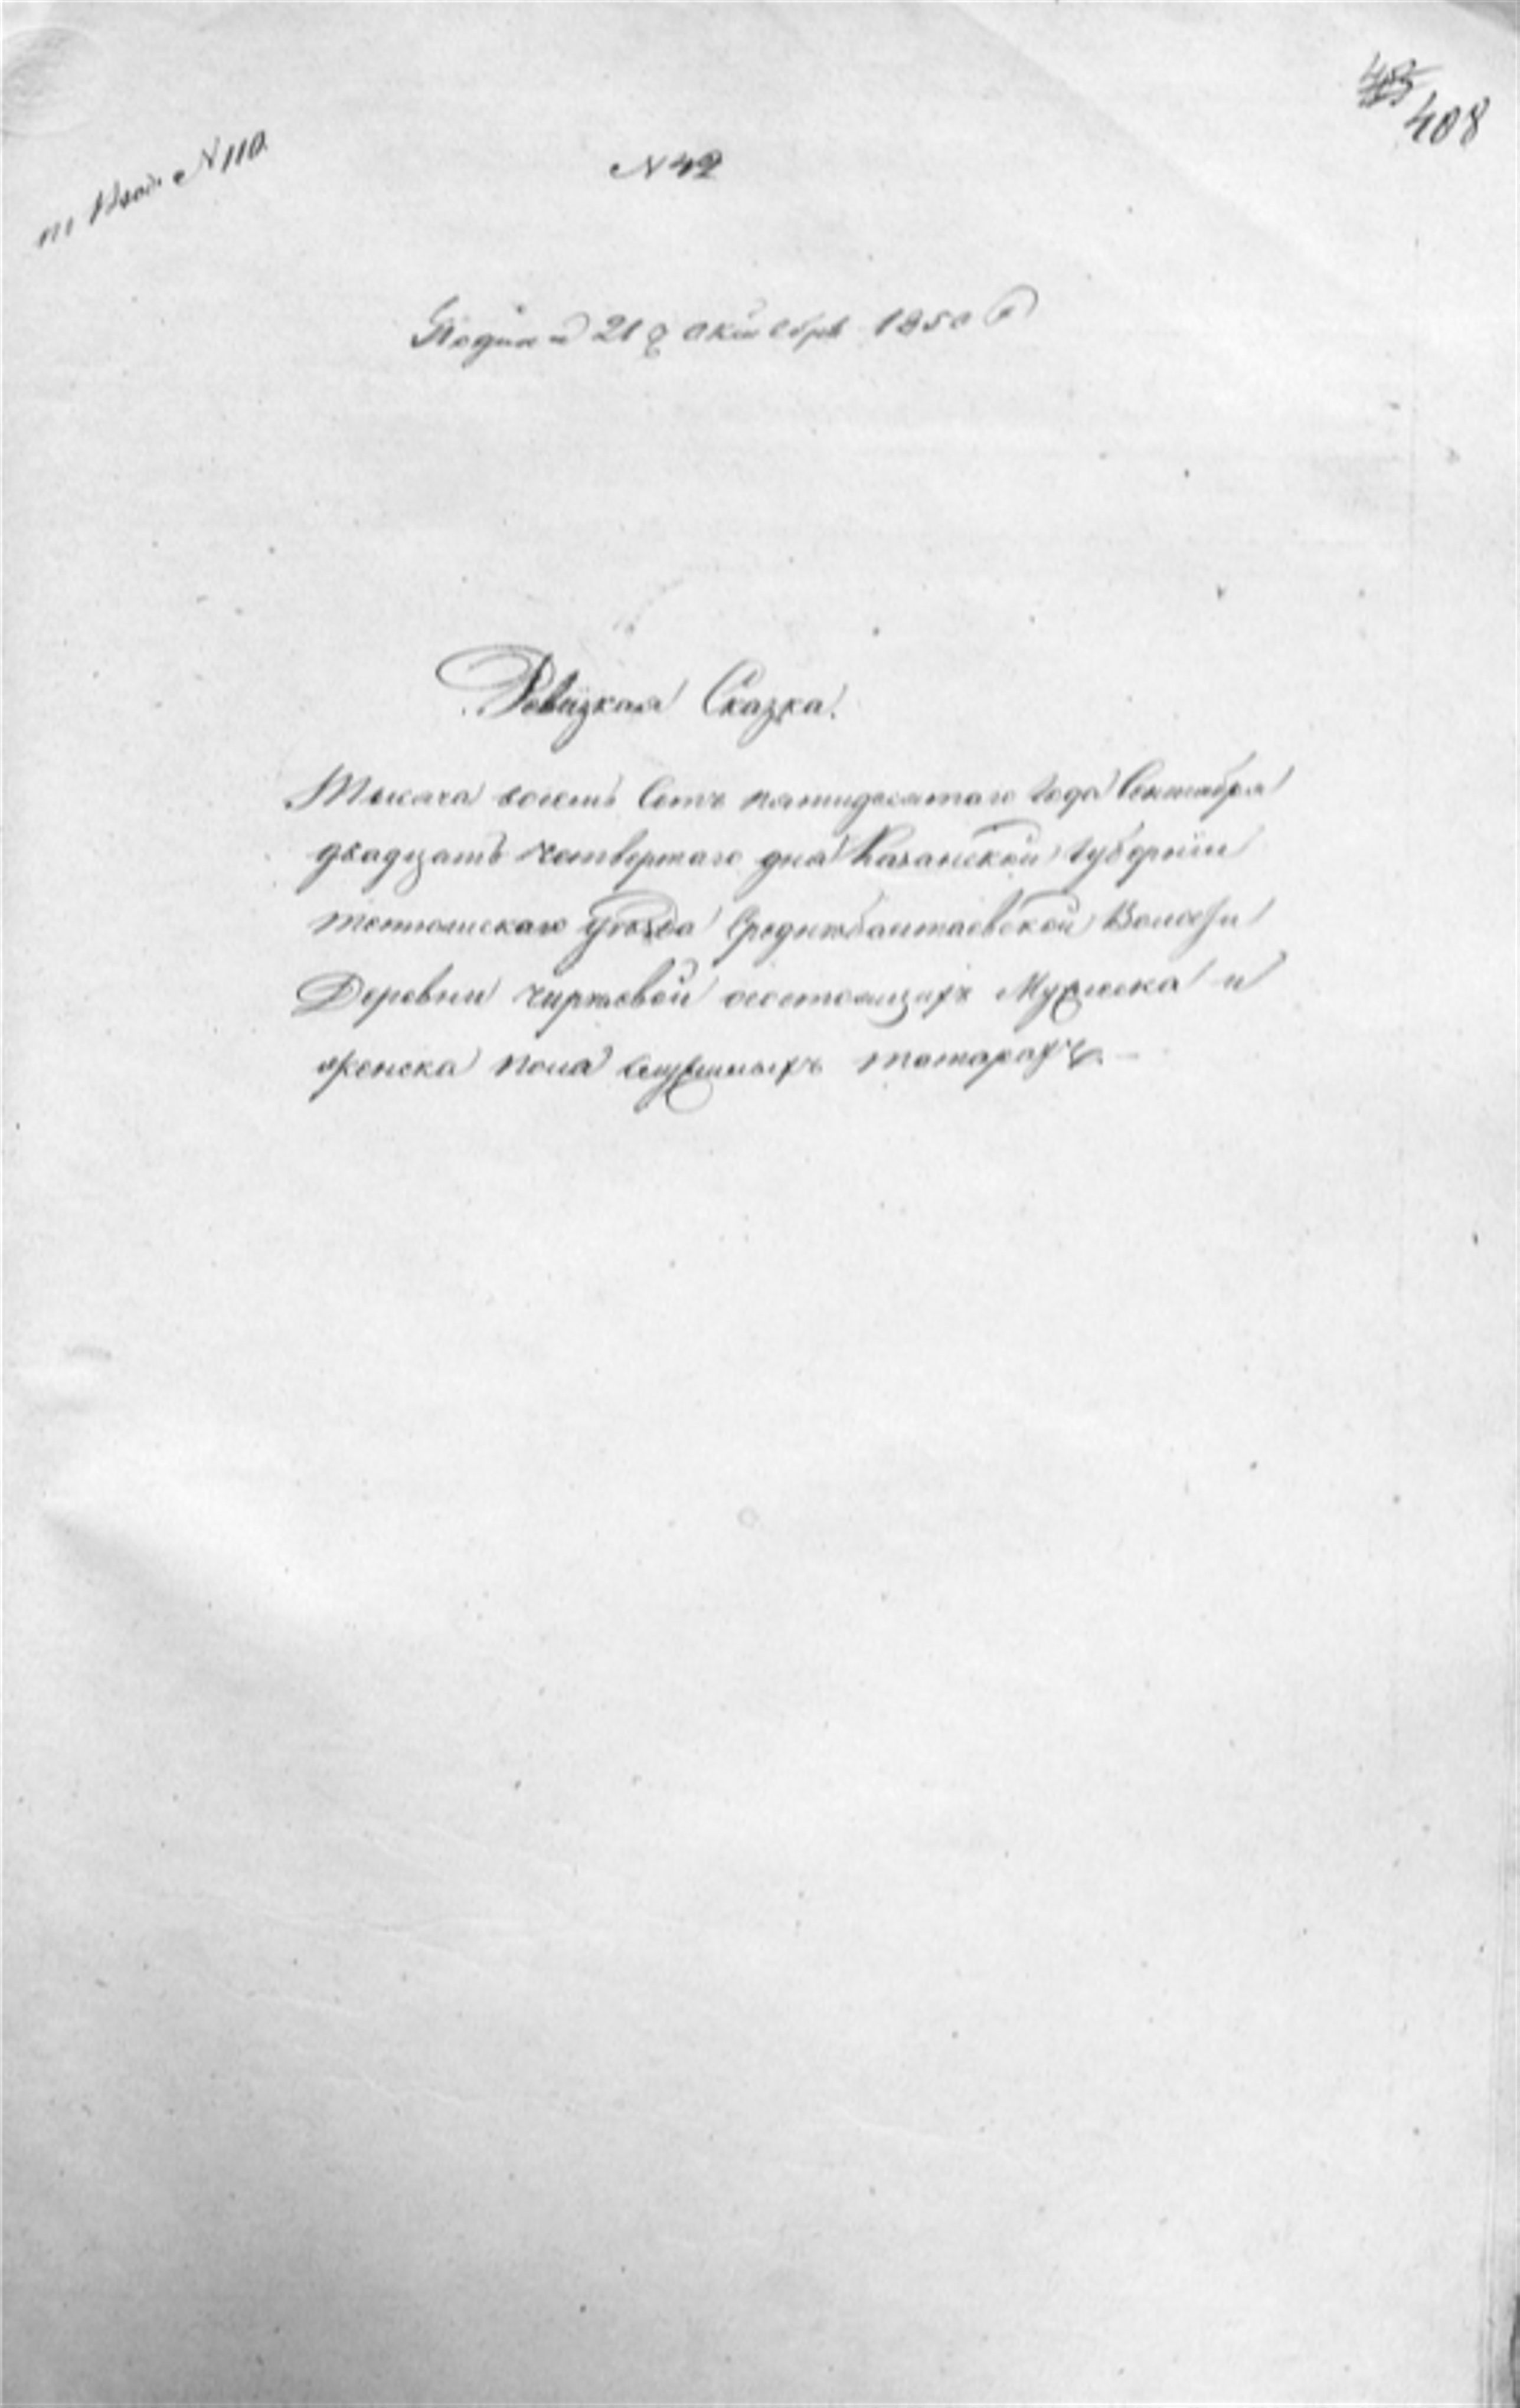 408
N 110
N 42
Подана 21 октября 1850
Ревизкая Сказка.
Тысяча восемь Сотъ пятидесятаго года Сентября
двадцать четвертаго дня Казанской губернии
тетюшскаго уезда Среднебалтаевской Волости
Деревни чирковой состоящихъ Мужеска и
женска пола служилыхъ татарахъ